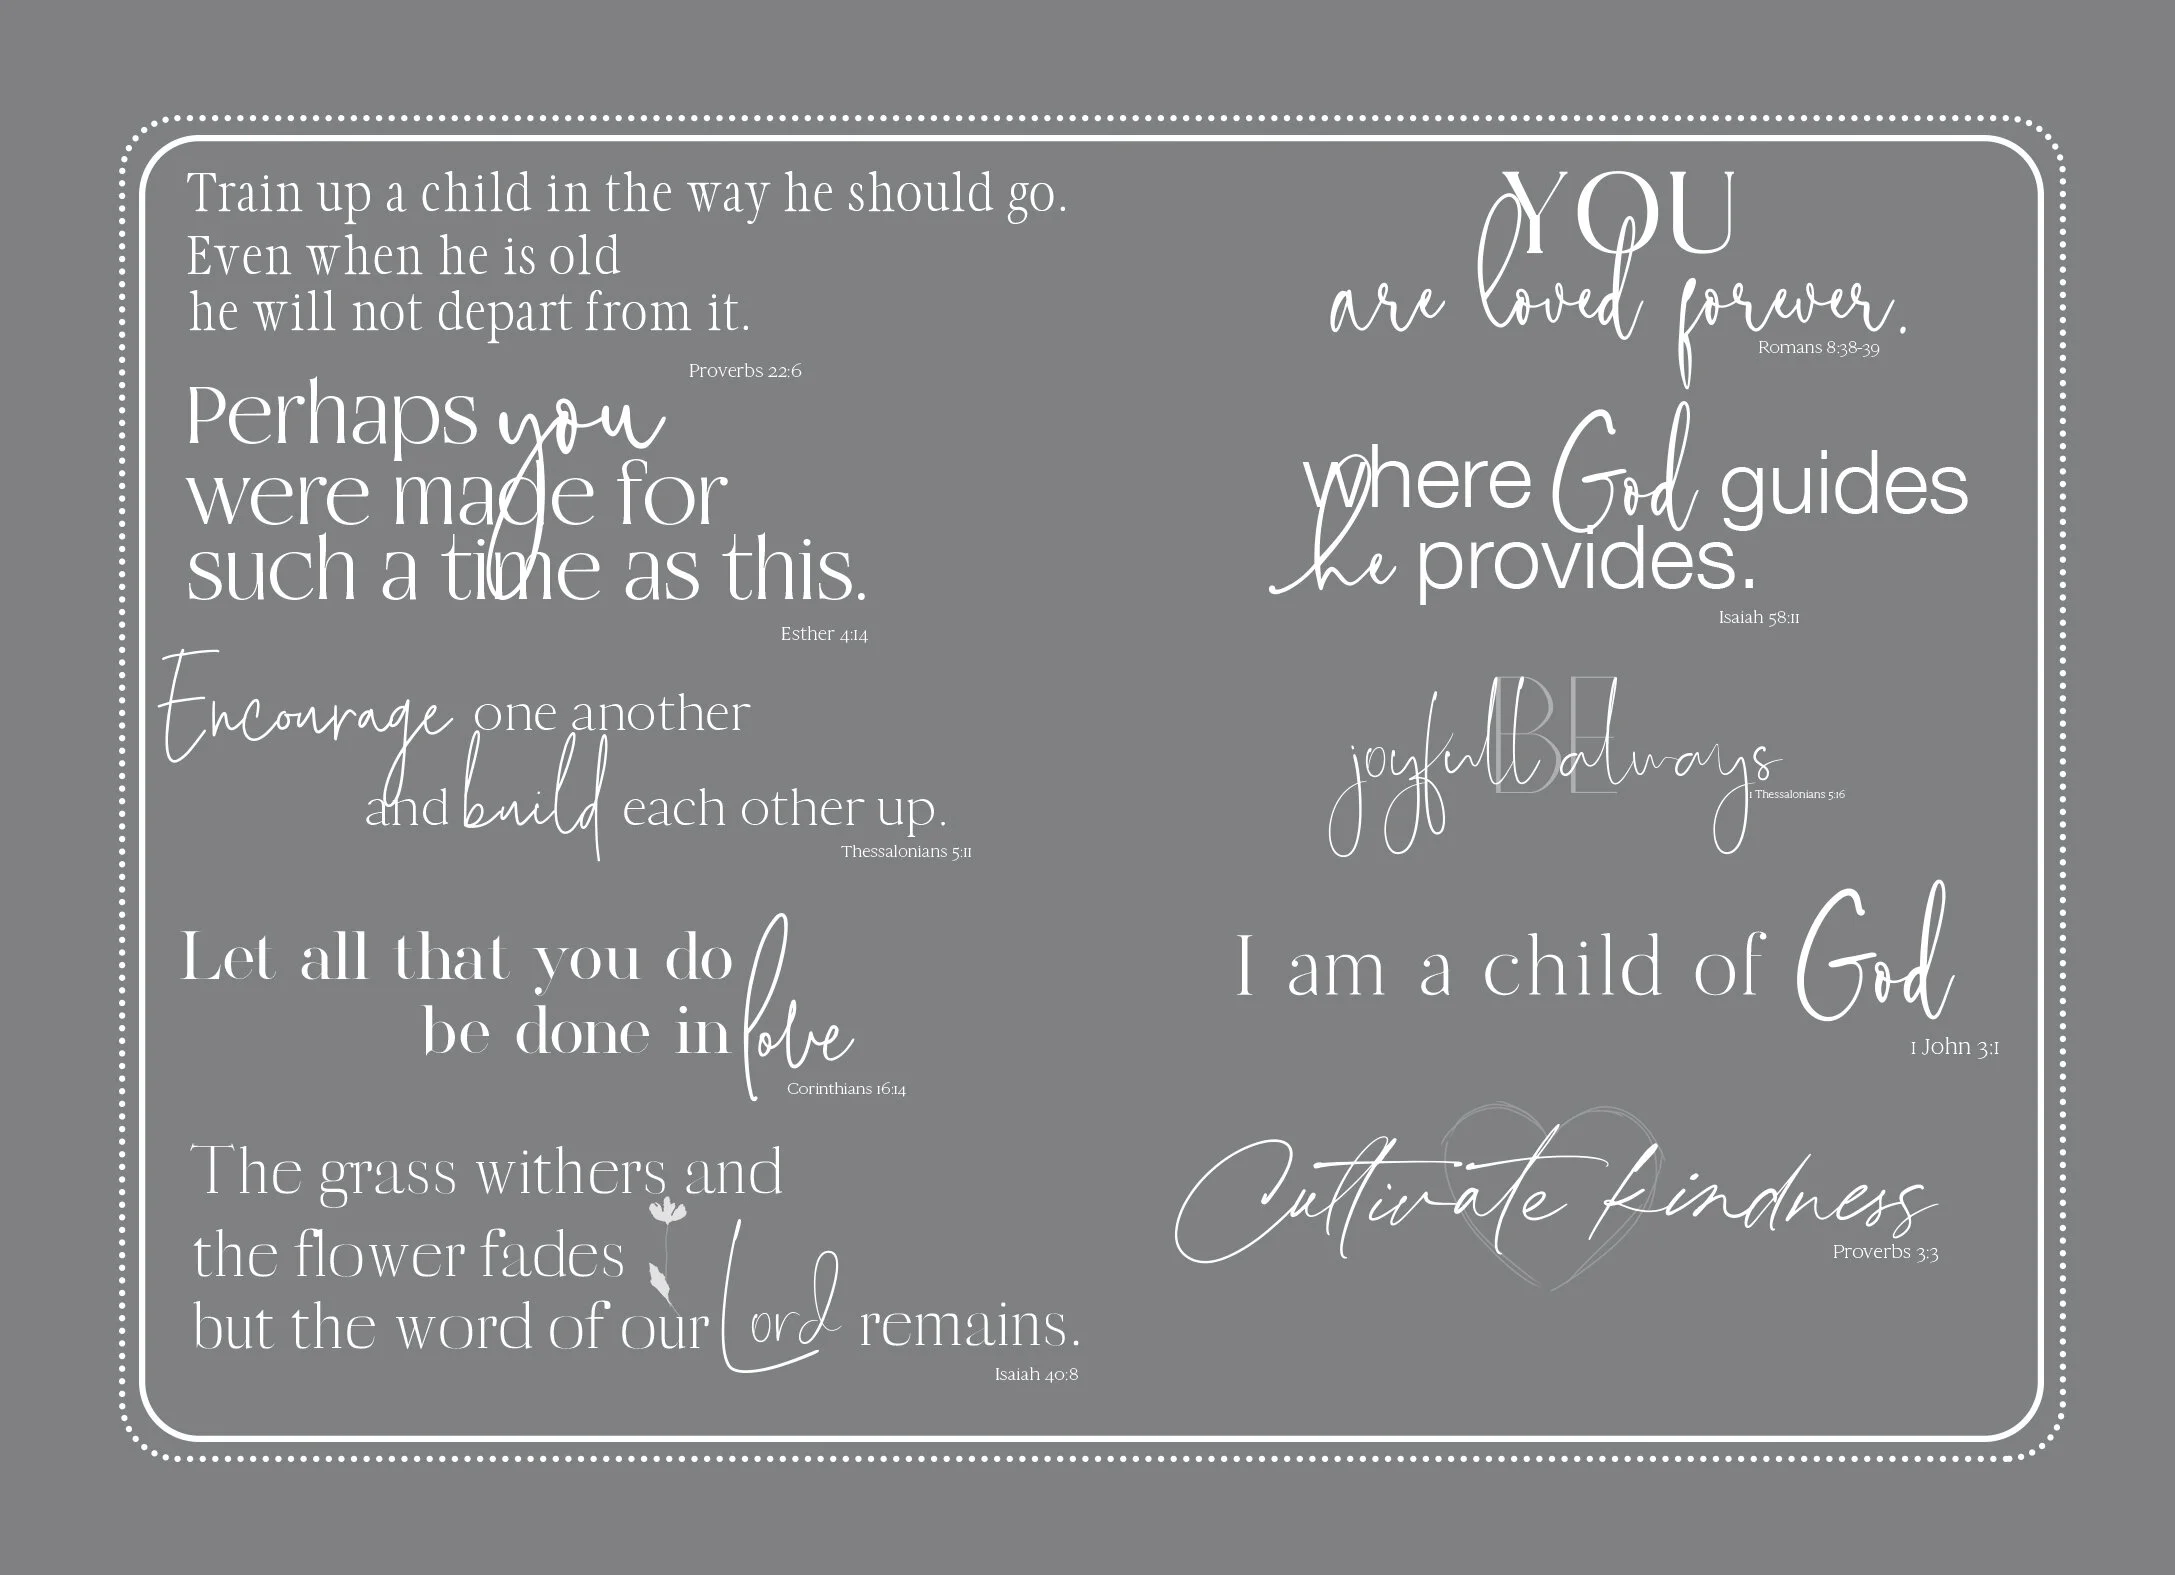 Train up a child in the way he should go.
Even when he is old
he will not depart from it.
Proverbs 22:6
Perhaps you
were made for
such a time as this.
Esther 4:14
Encourage one another
and build each other up.
Thessalonians 5:11
Let all that you do
be done in love
Corinthians 16:14
The grass withers and
the flower fades
but the word of our Lord remains.
Isaiah 40:8
YOU
are loved forever.
Romans 8:38-39
where God guides
he provides.
Isaiah 58:11
BE
joyfull always
1 Thessalonians 5:16
I am a child of God
1 John 3:1
Cultivate kindness
Proverbs 3:3